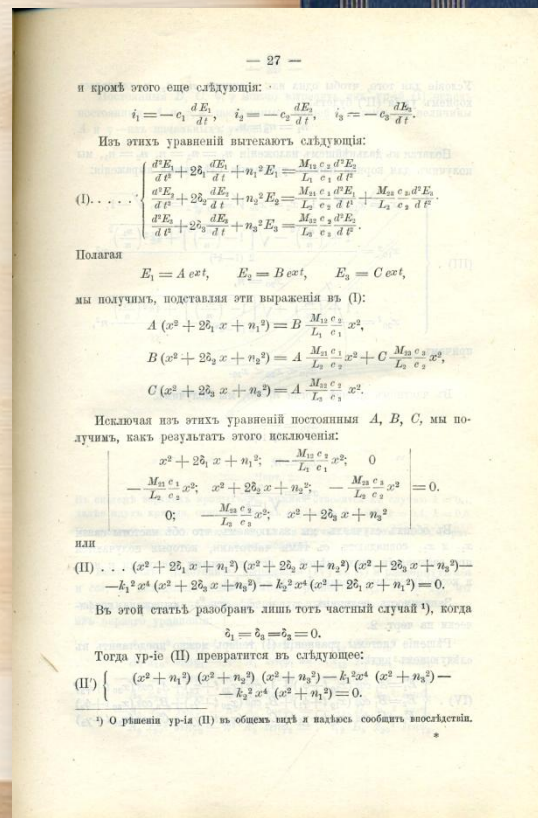 — 27 —
и кромѣ этого еще слѣдующія:
i₁ = — c₁ dE₁/dt, i₂ = — c₂ dE₂/dt, i₃ = — c₃ dE₃/dt.
Изъ этихъ уравненій вытекаютъ слѣдующія:
d²E₁/dt² + 2δ₁ dE₁/dt + n₁² E₁ = M₁₂/L₁ c₂/c₁ d²E₂/dt²
(I). . . . . d²E₂/dt² + 2δ₂ dE₂/dt + n₂² E₂ = M₂₁/L₂ c₁/c₂ d²E₁/dt² + M₂₃/L₂ c₃/c₂ d²E₃/dt².
d²E₃/dt² + 2δ₃ dE₃/dt + n₃² E₃ = M₃₂/L₃ c₂/c₃ d²E₂/dt².
Полагая
E₁ = A eˣᵗ, E₂ = B eˣᵗ, E₃ = C eˣᵗ,
мы получимъ, подставляя эти выраженія въ (I):
A (x² + 2δ₁ x + n₁²) = B M₁₂/L₁ c₂/c₁ x²,
B (x² + 2δ₂ x + n₂²) = A M₂₁/L₂ c₁/c₂ x² + C M₂₃/L₂ c₃/c₂ x²,
C (x² + 2δ₃ x + n₃²) = A M₃₂/L₃ c₂/c₃ x².
Исключая изъ этихъ уравненій постоянныя A, B, C, мы по-
лучимъ, какъ результатъ этого исключенія:
x² + 2δ₁ x + n₁²; — M₁₂/L₁ c₂/c₁ x²; 0
— M₂₁/L₂ c₁/c₂ x²; x² + 2δ₂ x + n₂²; — M₂₃/L₂ c₃/c₂ x² = 0.
0; — M₃₂/L₃ c₂/c₃ x²; x² + 2δ₃ x + n₃²
или
(II) . . . (x² + 2δ₁ x + n₁²) (x² + 2δ₂ x + n₂²) (x² + 2δ₃ x + n₃²)—
—k₁² x⁴ (x² + 2δ₃ x + n₃²) — k₂² x⁴ (x² + 2δ₁ x + n₁²) = 0.
Въ этой статьѣ разобранъ лишь тотъ частный случай ¹), когда
δ₁ = δ₃ = δ₃ = 0.
Тогда ур-іе (II) превратится въ слѣдующее:
(II′) { (x² + n₁²) (x² + n₂²) (x² + n₃²) — k₁² x⁴ (x² + n₃²) —
— k₂² x⁴ (x² + n₁²) = 0.
¹) О рѣшеніи ур-ія (II) въ общемъ видѣ я надѣюсь сообщить впослѣдствіи.
*